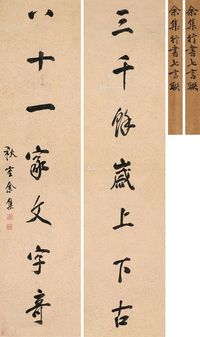 三千餘歲上下古
八十一家文字奇
秋室余集
余集行書七言聯
余集行書七言聯